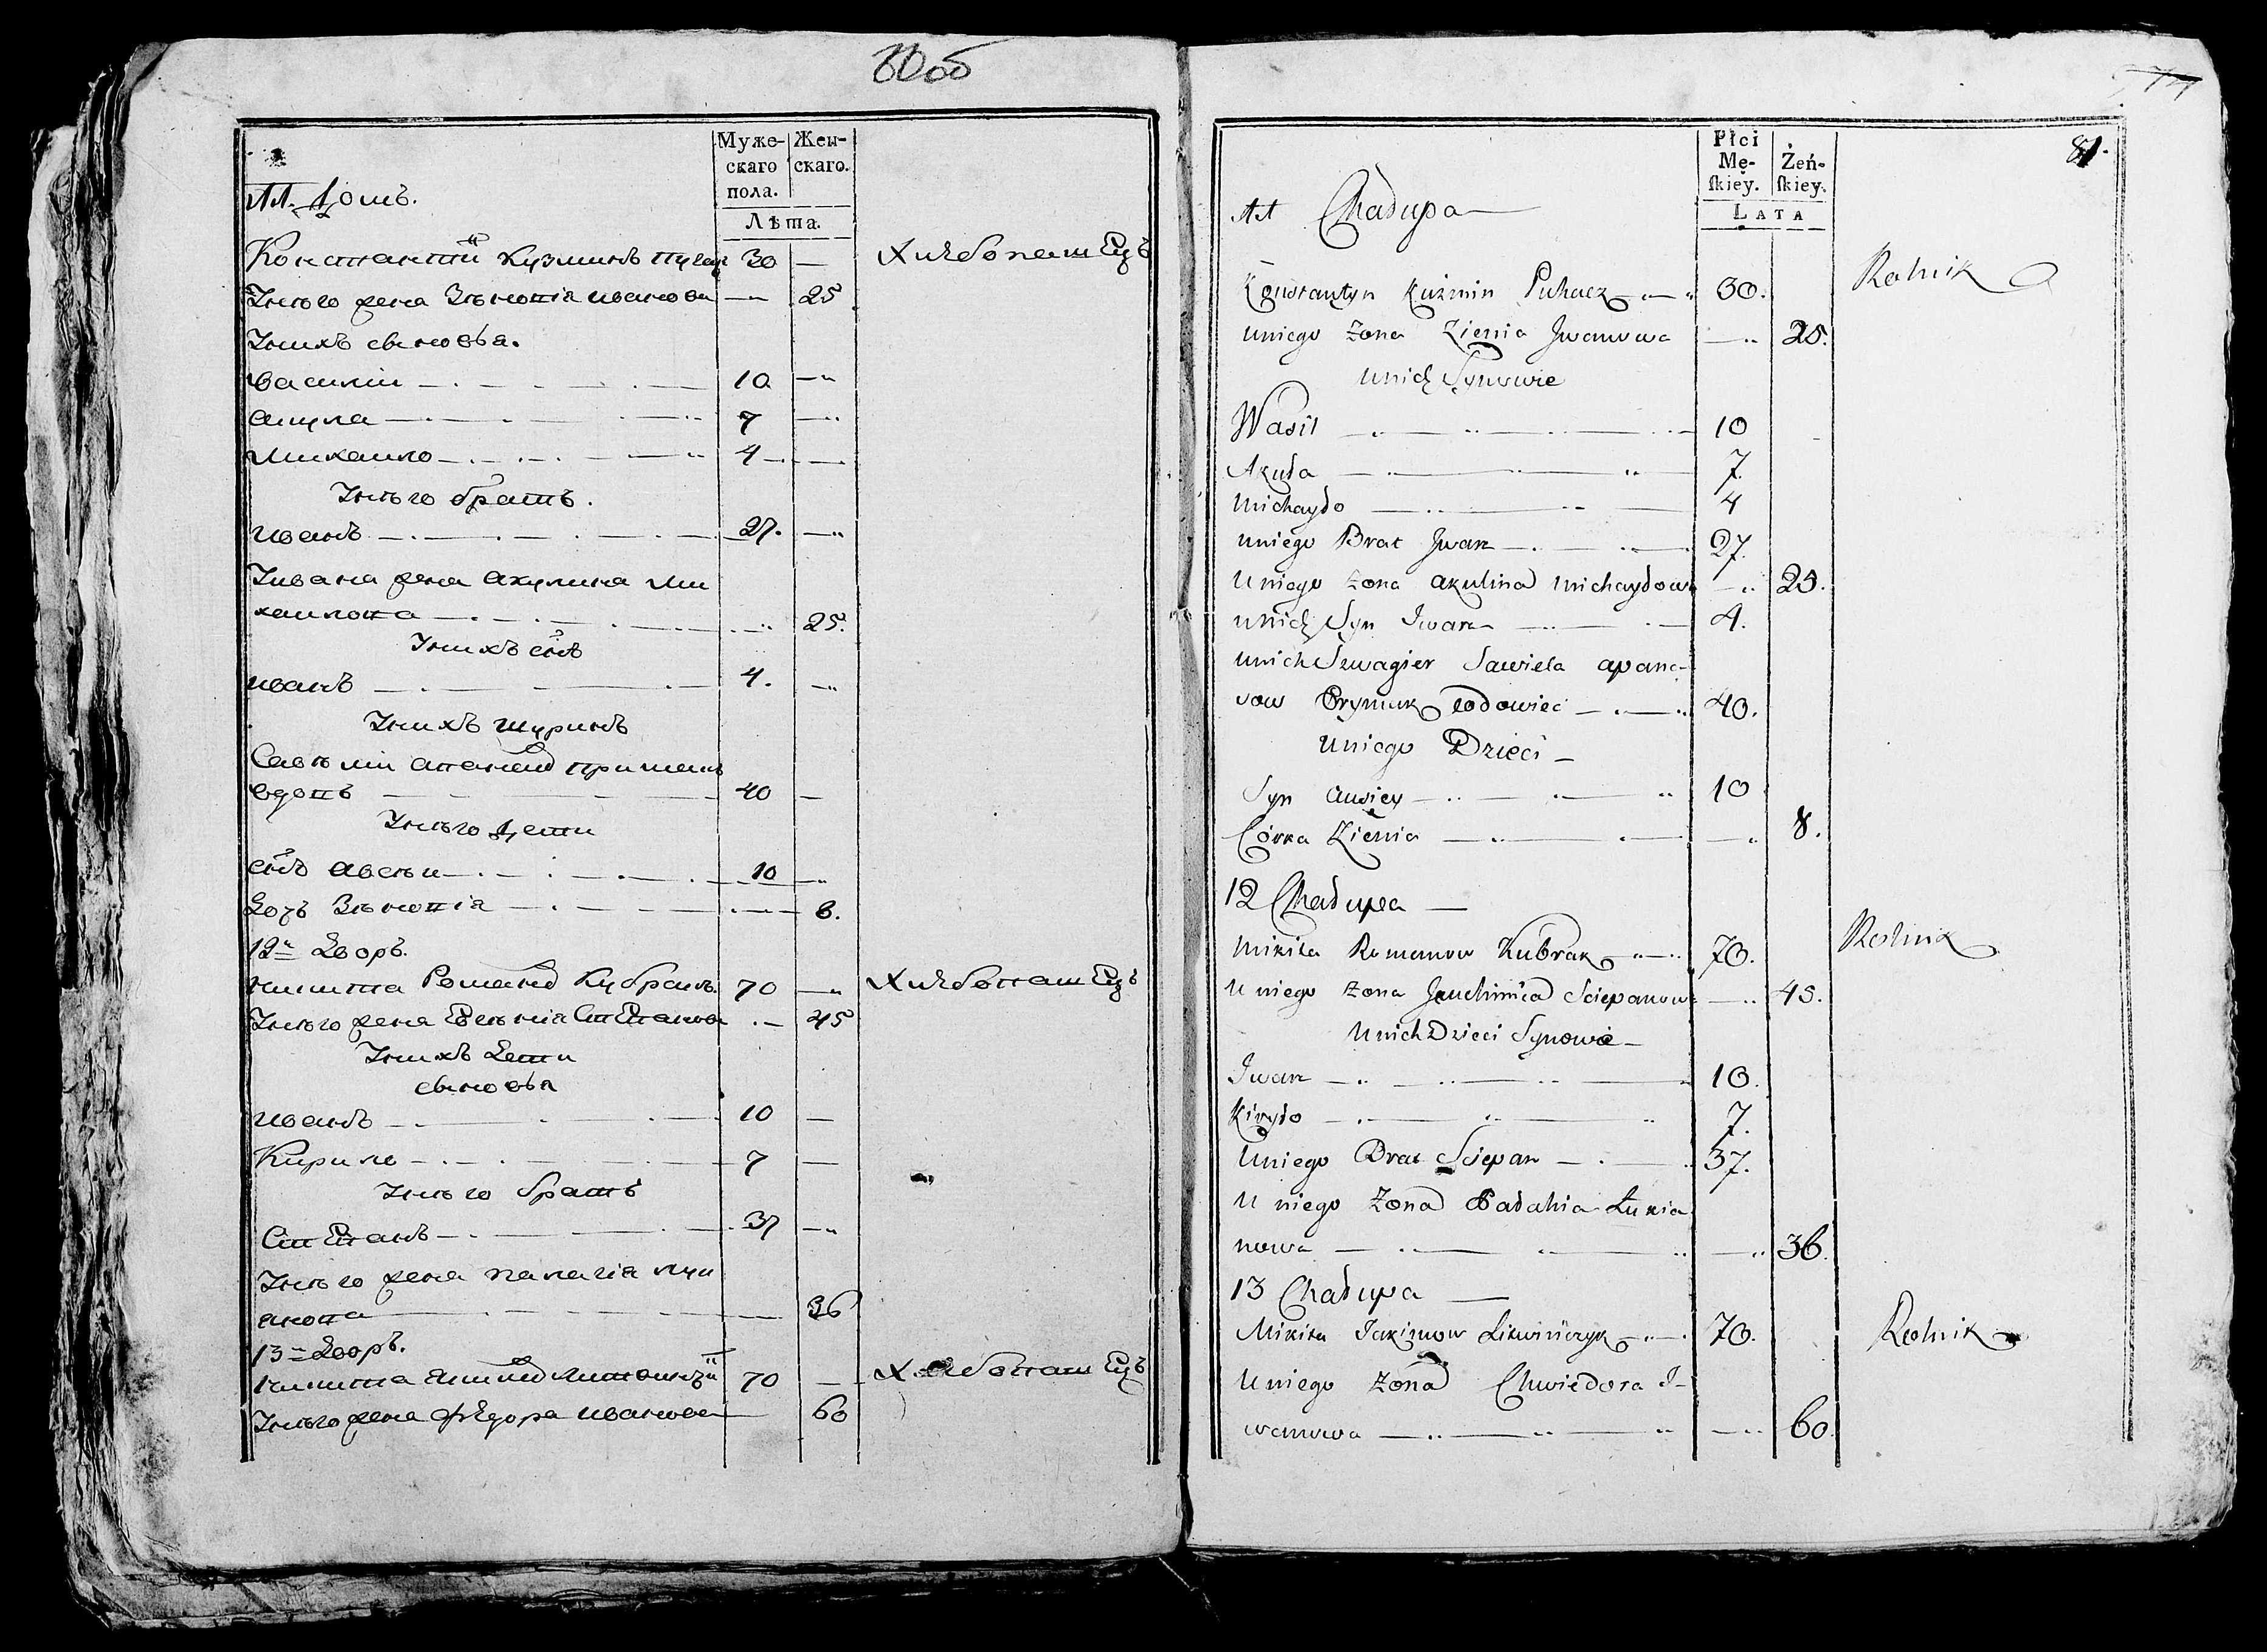 80об
Муже- Жен-
скаго скаго.
пола.
Лѣта.
11. домъ.
Константiй Кузминъ Пугач 30 — хлѣбопашецъ
Унѣго жена Зѣновiя иванова — 25
Унихъ сыновья.
василiй 10 —
акула 7 —
михаило 4 —
Унѣго братъ.
иванъ 27. —
Уивана жена акулина ми
хаилова 25.
Унихъ сынъ
иванъ 4. —
Унихъ шуринъ
Савѣлiй апанасовъ примакъ
вдовъ 40 —
Унѣго дети
сынъ авсѣи 10 —
дочь Зѣновiя 8.
12й дворъ.
никита Романовъ Кубракъ. 70 — хлѣбопашецъ
Унѣго жена Степанова — 45
Унихъ дети
сыновья
иванъ 10 —
Кирило 7 —
Унѣго братъ
Степанъ 37 —
Унѣго жена палагiя луки
анова 36
13й дворъ.
никита 70 — хлѣбопашецъ
Унѣго жена Фѣдора иванова 60
81.
Płci
Mę- Żeń-
skiey. skiey.
LATA
11 Chałupa
Konstantyn Kuźmin Puhacz 30. Rolnik
uniego Żona Zienia Jwanowa 25.
unich Synowie
Wasil 10
Akuła 7.
Michayło 4
uniego Brat Jwan 27.
Uniego Żona akulina Michayłowa 25.
unich Syn Jwan 4.
unich Szwagier Sawieła apana-
sow Prymak wdowiec 40.
uniego Dzieci
Syn Awsiey 10
Córka Zienia 8.
12 Chałupa
Mikita Romanow Kubrak 70. Rolnik
U niego Żona Sciepanowa 45.
Unich Dzieci Synowie
Jwan 10.
Kiryło 7.
Uniego Brat Sciepan 37.
U niego Żona Pałahia Łukia
nowa 36.
13 Chałupa
Mikita Jakimow Litwinczyk 70. Rolnik
Uniego Żona Chwiedora J-
wanowa 60.